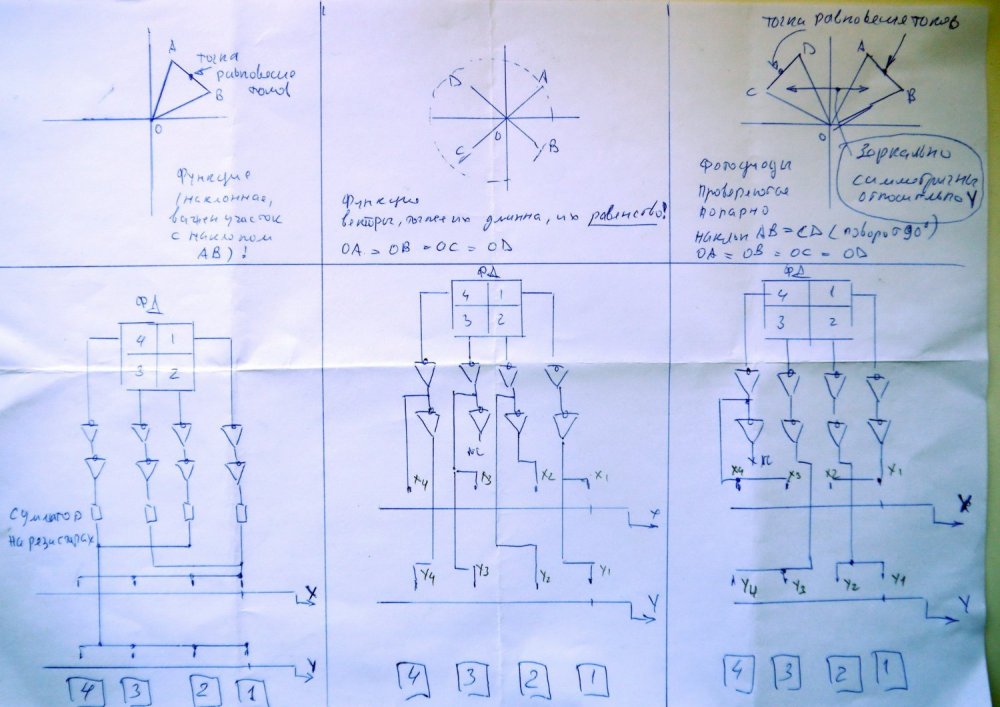 A
точка
равновесие
токов
B
O
Функция
(наклонная,
важен участок
с наклоном
AB)!
D
A
O
C
B
Функция
векторы, точнее их длинна, их равенство!
OA = OB = OC = OD
точка равновесие токов
D
A
C
B
O
Зеркально
симметричны
относительно Y
Фотодиоды
проверяются
попарно
наклон AB = CD (поворот 90°)
OA = OB = OC = OD
ФД
4 1
3 2
Сумматор
на резисторах
X
Y
4 3 2 1
ФД
4 1
3 2
NC
X4 X3 X2 X1
X
Y4 Y3 Y2 Y1
Y
4 3 2 1
ФД
4 1
3 2
NC
X4 X3 X2 X1
X
Y4 Y3 Y2 Y1
Y
4 3 2 1